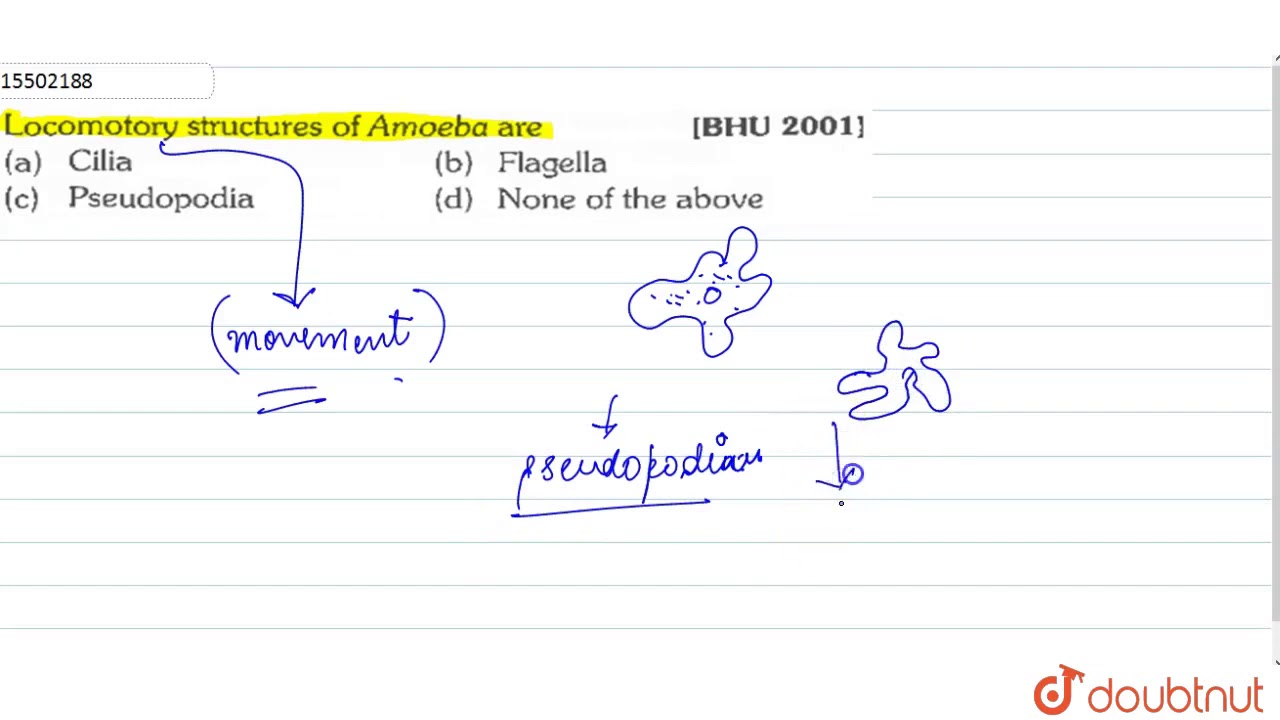 15502188
Locomotory structures of Amoeba are [BHU 2001]
(a) Cilia (b) Flagella
(c) Pseudopodia (d) None of the above
(movement)
doubtnut